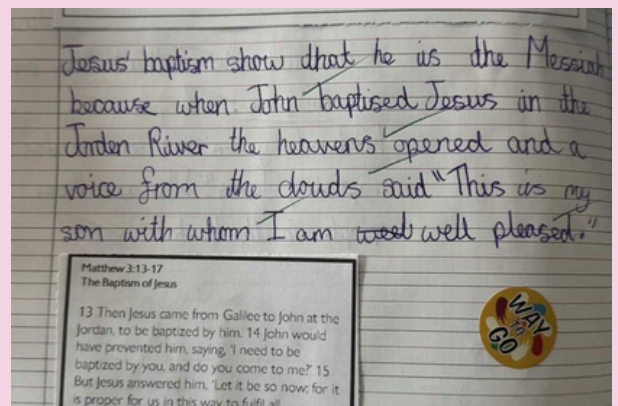 Jesus' baptism show that he is the Messiah
because when John baptised Jesus in the
Jorden River the heavens opened and a
voice from the clouds said "This is my
son with whom I am well pleased."
Matthew 3:13-17
The Baptism of Jesus
13 Then Jesus came from Galilee to John at the
Jordan, to be baptized by him. 14 John would
have prevented him, saying, 'I need to be
baptized by you, and do you come to me?' 15
But Jesus answered him, 'Let it be so now; for it
is proper for us in this way to fulfil all
WAY
TO
GO